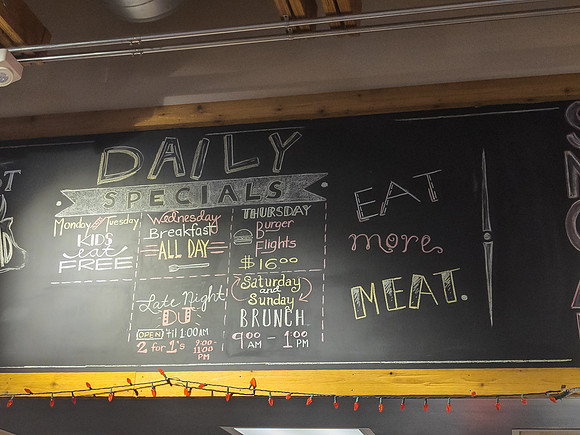 DAILY
SPECIALS
Monday Tuesday
KIDS
eat
FREE
Wednesday
Breakfast
ALL DAY
THURSDAY
Burger
Flights
$16.00
Late Night!
OPEN 'til 1:00AM
2 for 1's 9:00-
11:00
PM
Saturday
and
Sunday
BRUNCH
9:00 AM - 1:00 PM
EAT
more
MEAT.